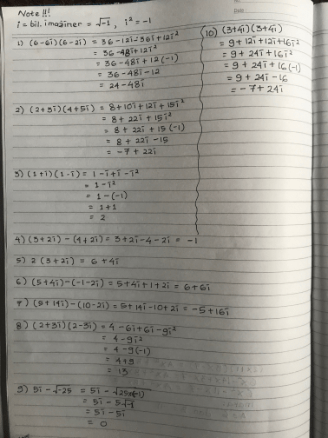 Note !!!
i = bil. imajiner = √-1 , i² = -1
1) (6-6i)(6-2i) = 36-12i-36i+12i²
= 36-48i+12i²
= 36-48i+12(-1)
= 36-48i-12
= 24-48i
2) (2+3i)(4+5i) = 8+10i+12i+15i²
= 8+22i+15i²
= 8+22i+15(-1)
= 8+22i-15
= -7+22i
3) (1+i)(1-i) = 1-i+i-i²
= 1-i²
= 1-(-1)
= 1+1
= 2
4) (3+2i)-(4+2i) = 3+2i-4-2i = -1
5) 2(3+2i) = 6+4i
6) (5+4i)-(-1-2i) = 5+4i+1+2i = 6+6i
7) (5+14i)-(10-2i) = 5+14i-10+2i = -5+16i
8) (2+3i)(2-3i) = 4-6i+6i-9i²
= 4-9i²
= 4-9(-1)
= 4+9
= 13
9) 5i-√-25 = 5i-√25(-1)
= 5i-5√-1
= 5i-5i
= 0
Date:
10) (3+4i)(3+4i)
= 9+12i+12i+16i²
= 9+24i+16i²
= 9+24i+16(-1)
= 9+24i-16
= -7+24i